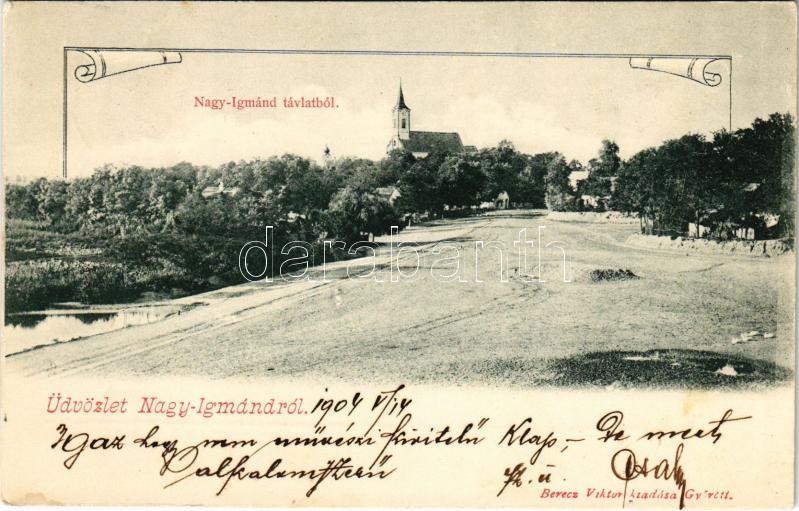 Nagy-Igmánd távlatból.
darabanth
Üdvözlet Nagy-Igmándról. 1904 V/14
Igaz hogy nem művészi kivitelű Klap,- De mert
alkalomszerű
Berecz Viktor kiadása Győrött.